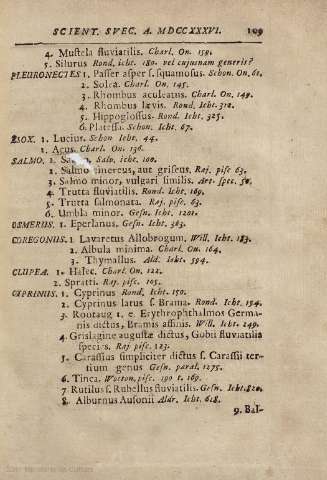 SCIENT. SVEC. A. MDCCXXXVI. 109
4. Mustela fluviatilis. Charl. On. 159.
5. Silurus Rond. icht. 180. vel cujusnam generis?
PLEURONECTES 1. Passer asper s. squamosus. Schon. On. 61.
2. Solea. Charl. On. 145.
3. Rhombus aculeatus. Charl. On. 149.
4. Rhombus lævis. Rond. icht. 312.
5. Hippoglossus. Rond. icht. 325.
6. Platessa. Schon. icht. 67.
ESOX. 1. Lucius. Schon Icht. 44.
1. Acus. Charl. On. 136.
SALMO. 1. Salv. icht. 100.
2. Salmo cinereus, aut griseus. Raj. pisc 63.
3. Salmo minor, vulgari similis. Art. spec. 50.
4. Trutta fluviatilis. Rond. icht. 169.
5. Trutta salmonata. Raj. pisc. 63.
6. Umbla minor. Gesn. icht. 1201.
OSMERUS. 1. Eperlanus. Gesn. icht. 363.
COREGONUS. 1. Lavaretus Allobrogum. Will. Icht. 183.
2. Albula minima. Charl. On. 164.
3. Thymallus. Ald. icht. 594.
CLUPEA. 1. Halec. Charl. On. 122.
2. Spratti. Raj. pisc. 105.
CYPRINUS. 1. Cyprinus Rond. icht. 150.
2. Cyprinus latus s. Brama. Rond. Icht. 154.
3. Rootaug i. e. Erythrophthalmos Germa-
nis dictus, Bramis affinis. Will. Icht. 249.
4. Grislagine augustæ dictus, Gobii fluviatilis
species. Raj. pisc. 123.
5. Carassius simpliciter dictus s. Carassii ter-
tium genus Gesn. paral. 1275.
6. Tinca. Wotton. pisc. 190 t. 169.
7. Rutilus s. Rubellus fluviatilis. Gesn. icht. 820.
8. Alburnus Ausonii Aldr. Icht. 618.
9. Bal-